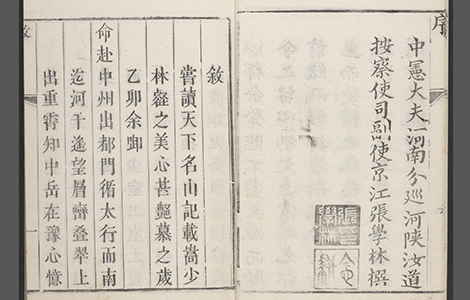 序
中憲大夫河南分巡河陝汝道
按察使司副使京江張學林撰
敘
嘗讀天下名山記載嵩少
林壑之美心甚豔慕之歲
乙卯余啣
命赴
中州出都門循太行而南
迄河干遙望層巒疊翠上
出重霄知中岳在豫心憶
敘
一